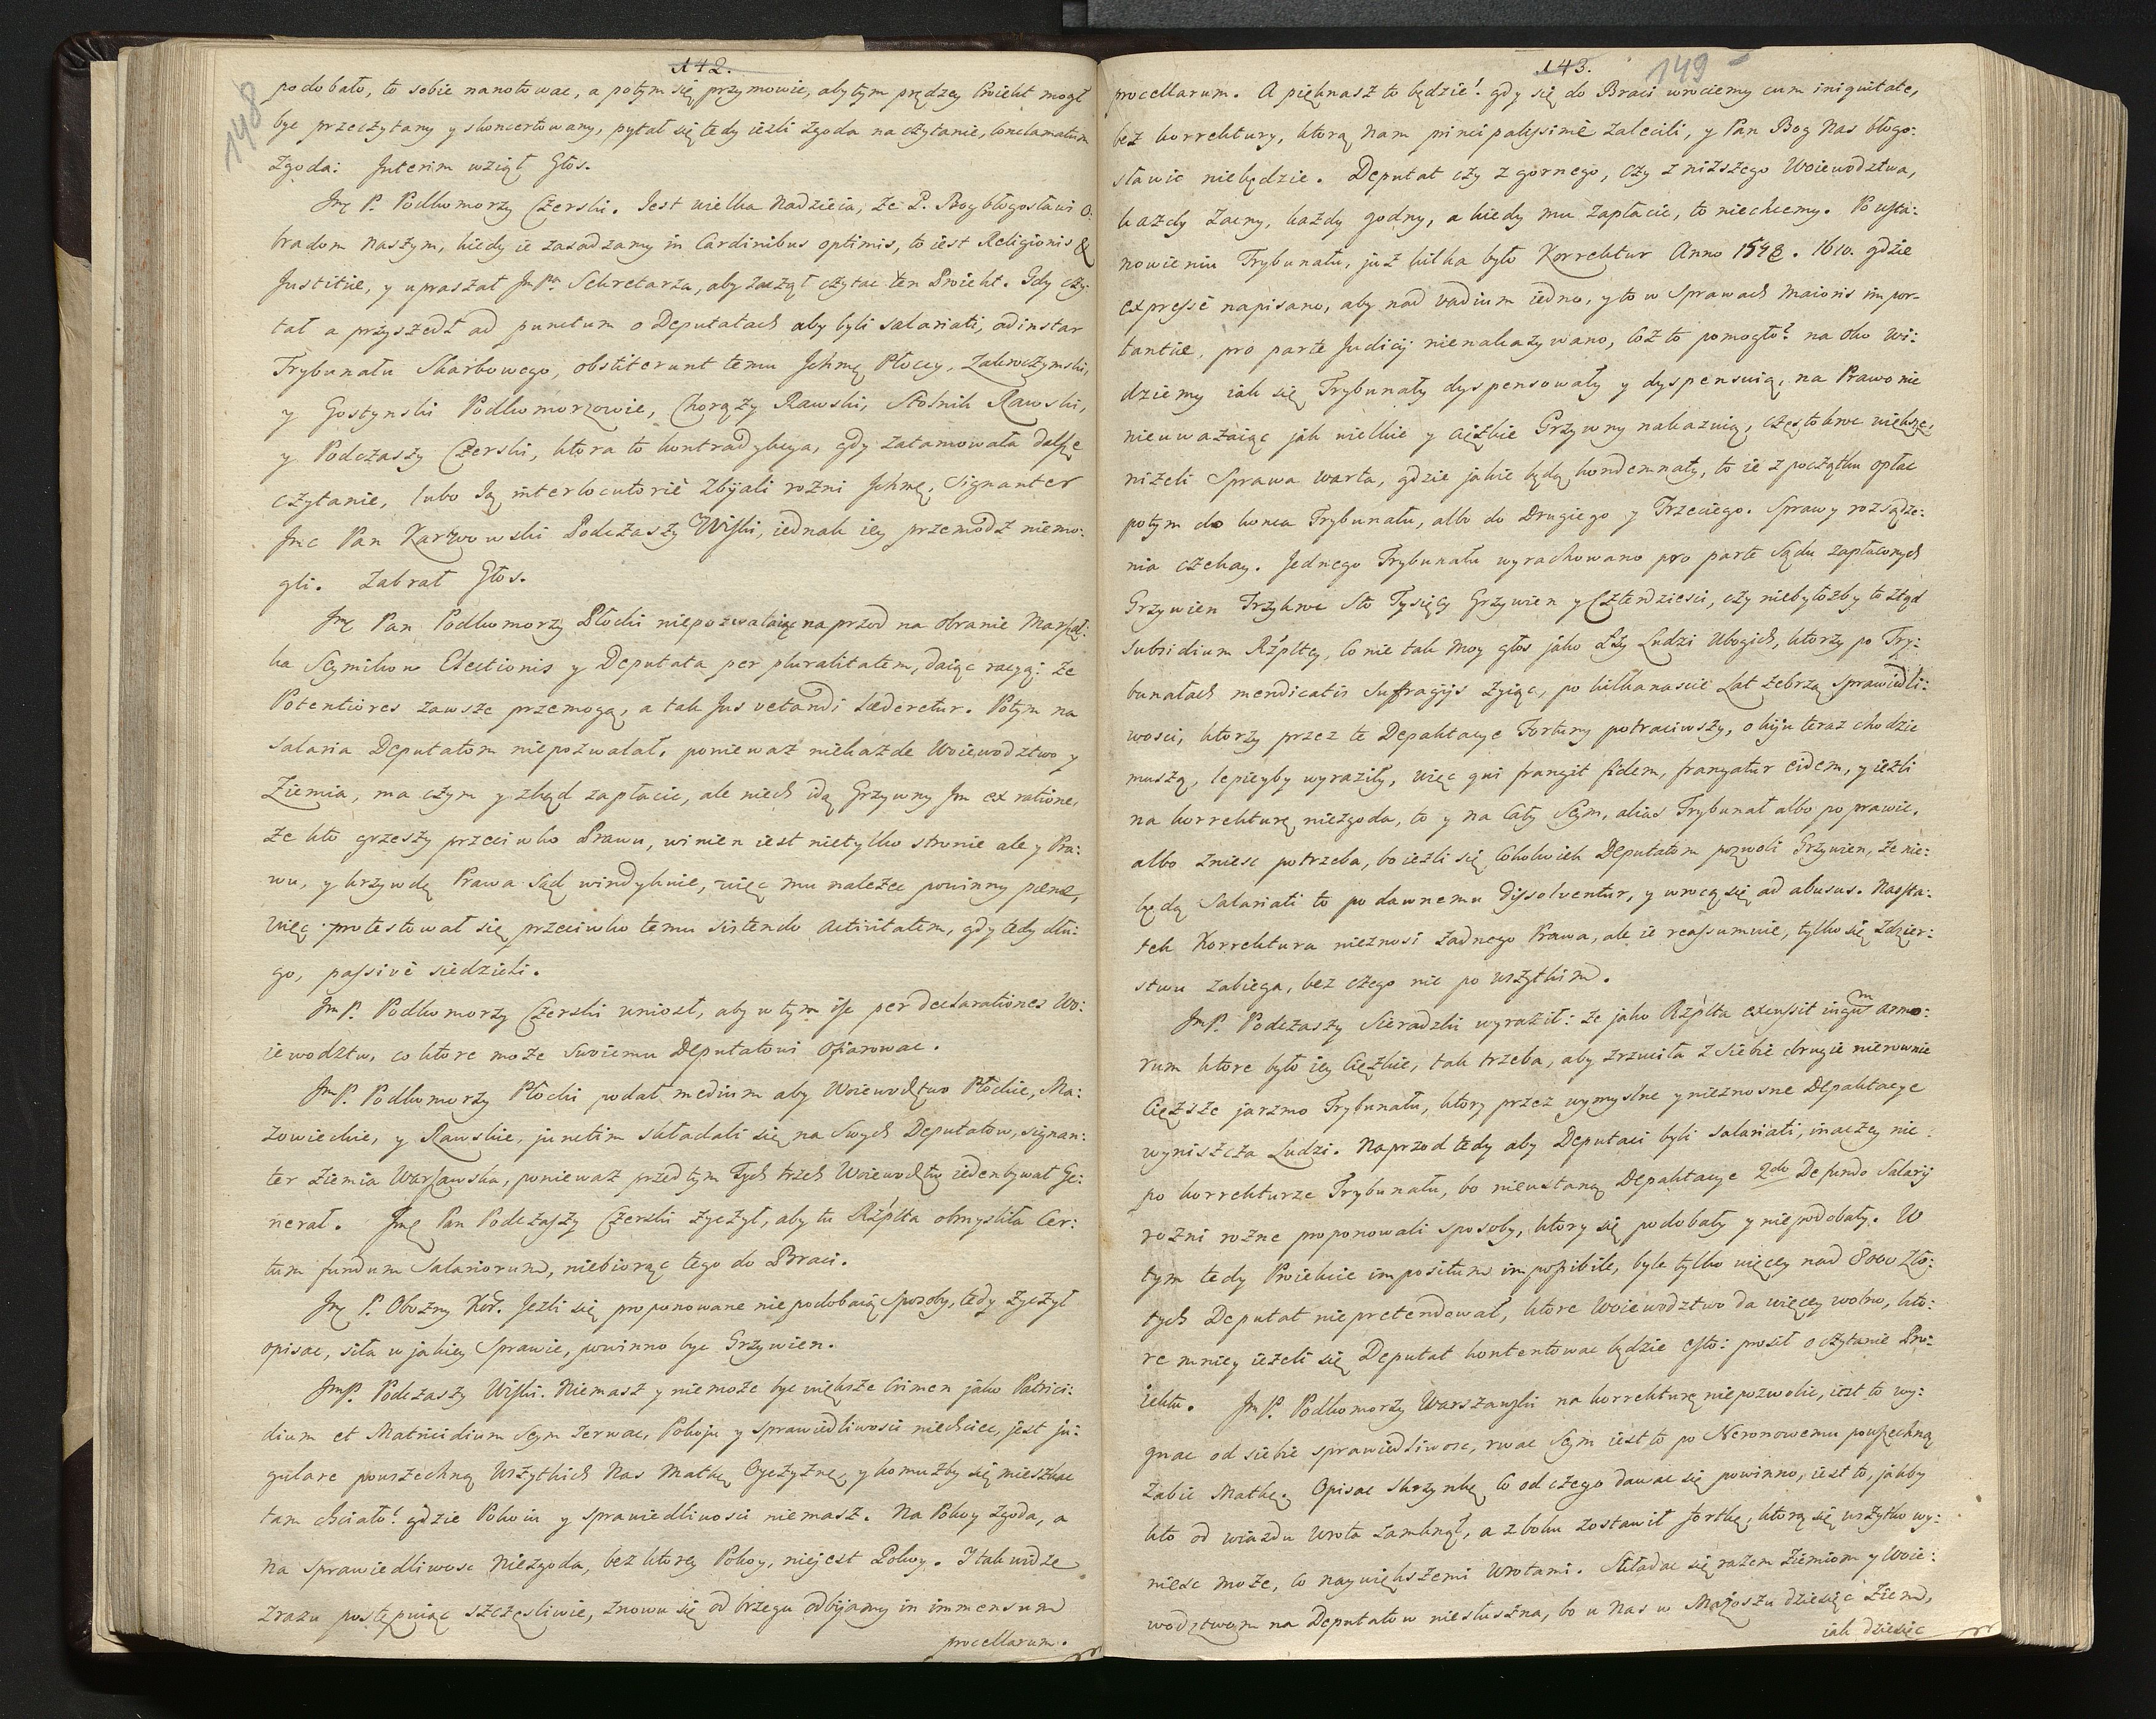 142.
148
podobało, to sobie nanotowac, a potym się przymowic, aby tym prędzey Proiekt mogł
byc przeczytany y skoncertowany, pytał się tedy ieżli zgoda na czytanie, conclamatum
Zgoda: Interim wziął Głos.
Jmę P. Podkomorzy Czerski. Jest wielka Nadzieia, że P. Bog błogosławi O:
bradom Naszym, kiedy ie zasadzamy in Cardinibus optimis, to iest Religionis &
Justitiæ, y upraszał JmPa. Sekretarza, aby zaczął czytac ten Proiekt. Gdy czy:
tał a przyszedł ad punctum o Deputatach aby byli salariati, ad instar
Trybunału Skarbowego, obstiterunt temu Ichmę Płoccy, Zakroczymski,
y Gostynski Podkomorzowie, Chorąży Rawski, Stolnik Rawski,
y Podczaszy Czerski, ktora to kontradykcya, gdy zatamowała dalsze
czytanie, lubo Ją interlocutoriè zbijali rożni Ichmę, Signanter
Jmc Pan Karwowski Podczaszy Wiski, iednak iey przemodz niemo:
gli. Zabrał Głos.
Jmę Pan Podkomorzy Płocki niepozwalaiąc naprzod na obranie Marszał:
ka Seymikow Electionis y Deputata per pluralitatem, daiąc racyą: że
Potentiores zawsze przemogą, a tak Jus vetandi læderetur. Potym na
Salaria Deputatom niepozwalał, poniewaz niekażde Woiewodztwo y
Ziemia, ma czym y zkąd zapłacic, ale niech idą Grzywny Im ex ratione,
że kto grzeszy przeciwko Prawu, winien iest nietylko stronie ale y Pra:
wu, y krzywdę Prawa Sąd windykuie, więc mu należec powinny pœnæ,
więc protestował się przeciwko temu sistendo activitatem, gdy tedy dłu:
go, passivè siedzieli.
JmP. Podkomorzy Czerski wniosł, aby w tym isc per declarationes Wo:
iewodztw, co ktore może Swoiemu Deputatowi Ofiarowac.
JmP. Podkomorzy Płocki podał medium aby Woiewodztwo Płockie, Ma:
zowieckie, y Rawskie, junctim składali się na Swych Deputatow, signan:
ter Ziemia Warszawska, poniewaz przed tym Tych trzech Woiewodztw ieden bywał Ge:
nerał. Jmę Pan Podczaszy Czerski życzył, aby tu Rzplta obmysliła Cer:
tum fundum Salariorum, niebiorąc tego do Braci.
Jmę P. Obozny Kor. Jeżli się proponowane niepodobaią sposoby, tedy życzył
opisac, siła w jakiey sprawie, powinno byc Grzywien.
JmP. Podczaszy Wiski. Niemasz y niemoże byc większe Crimen jako Patrici:
dium et Matricidium Seym zerwac, Pokoju y sprawiedliwosci niechciec, jest ju:
gulare powszechną Wszytkich Nas Matkę Oyczyznę, y komużby się mieszkac
tam chciało! gdzie Pokoiu y sprawiedliwosci niemasz. Na Pokoy zgoda, a
na sprawiedliwosc Niezgoda, bez ktorey Pokoy, niejest Pokoy. I tak widzę
zrazu postępuiąc szczęsliwie, znowu się od brzegu odbijamy in immensum
procellarum.
143.
149
procellarum. A pięknasz to będzie! gdy się do Braci wrociemy cum iniquitate,
bez korrektury, ktorą nam principalissimè zalecili, y Pan Bog Nas błogo:
sławic niebędzie. Deputat czy z gornego, czy z nizszego Woiewodztwa,
kazdy zacny, każdy godny, a kiedy mu zapłacic, to niechcemy. Po usta:
nowieniu Trybunału, już kilka było Korrektur Anno 1548. 1610. gdzie
expressè napisano, aby nad vadium iedno, y to w sprawach maioris impor:
tantiæ, pro parte Judicij nienakazywano, coż to pomogło? na oko wi:
dziemy iak się Trybunały dyspensowały y dyspensuią, na Prawo nie
nieuważaiąc jak wielkie y ciężkie Grzywny nakazuią, częstokroc większe,
niżeli Sprawa warta, gdzie jakie będą kondemnaty, to ie z początku opłac
potym do konca Trybunału, albo do Drugiego y Trzeciego. Sprawy rozsądze:
nia czekay. Jednego Trybunału wyrachowano pro parte Sądu zapłaconych
Grzywien Trzykroc Sto Tysięcy Grzywien y Czterdziesci, czy niebyłożby to ztąd
subsidium Rzpltey, Co nie tak moy głos jako Łzy Ludzi Ubogich, ktorzy po Try:
bunałach mendicatis Suffragijs żyiąc, po kilkanascie Lat żebrzą sprawiedli:
wosci, ktorzy przez te Depaktacye Fortuny potraciwszy, o kiju teraz chodzic
muszą, lepieyby wyraziły, więc qui frangit fidem, frangatur eidem, y ieżli
na korrekturę niezgoda, to y na cały Seym, alias Trybunał albo poprawic,
albo zniesc potrzeba, bo ieżli się cokolwiek Deputatom pozwoli Grzywien, że nie:
będą Salariati to po dawnemu dissolventur, y wrocą się ad abusus. Naosta:
tek Korrektura nieznosi żadnego Prawa, ale ie reassumuie, tylko się zdzier:
stwu zabiega, bez czego nic po wszytkim.
JmP. Podczaszy Sieradzki wyraził: że jako Rzplta excussit iugum armo:
rum ktore było iey Ciężkie, tak trzeba, aby zrzuciła z siebie drugie nierownie
Cięższe jarzmo Trybunału, ktory przez wymyslne y nieznosne Depaktacye
wyniszcza Ludzi. Naprzod tedy aby Deputaci byli Salariati, inaczey nic
po korrekturze Trybunału, bo nieustaną Depaktacye 2do De fundo Salarij
rożni rożne proponowali sposoby, ktory się podobały y niepodobały. W
tym tedy Proiekcie impositum impossibile, byle tylko więcey nad 8000 Zło:
tych Deputat niepretendował, ktore Woiewodztwo da więcey wolno, kto:
re mniey ieżeli się Deputat kontentowac będzie esto: prosił o czytanie Pro:
iektu. JmP. Podkomorzy Warszawski na korrekturę niepozwolic, iest to wy:
gnac od siebie sprawiedliwosc, rwac Seym iest to po Neronowemu powszechną
zabic Matkę. Opisac Skrzynkę co od czego dawac się powinno, iest to, jakby
kto od wiazdu Wrota zamknął, a z boku zostawił fortkę, ktorą się wszytko wy:
niesc może, co naywiększemi Wrotami. Składac się razem Ziemiom y Woie:
wodztwom na Deputatow niesłuszna, bo u Nas w Mazoszu dziesięc Ziem,
iak dziesięc